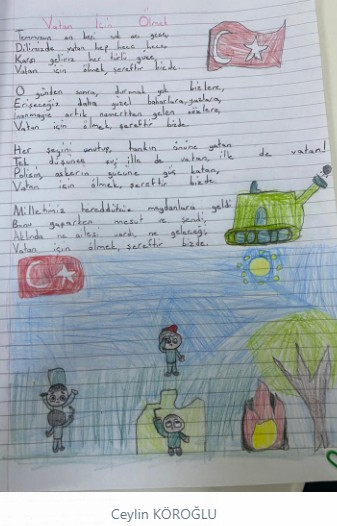 Vatan İçin Ölmek
Dilimizde vatan hep hece hece,
Karşı geliriz her türlü güce,
Vatan için ölmek, şereftir bizde.
O günden sonra, durmak yok bizlere,
Erişeceğiz daha güzel baharlara, yazlara,
İnanmayız artık namertten gelen sözlere,
Vatan için ölmek, şereftir bizde.
Her şeyini unutup, tankın önüne yatan
Tek düşünce ille de vatan, ille de vatan!
Polisin, askerin gücüne güç katan,
Vatan için ölmek, şereftir bizde.
Milletimiz meydanlara geldi
Bunu yaparken mesut ve şendi,
Aklında ne ailesi vardı, ne geleceği,
Vatan için ölmek, şereftir bizde.
Ceylin KÖROĞLU